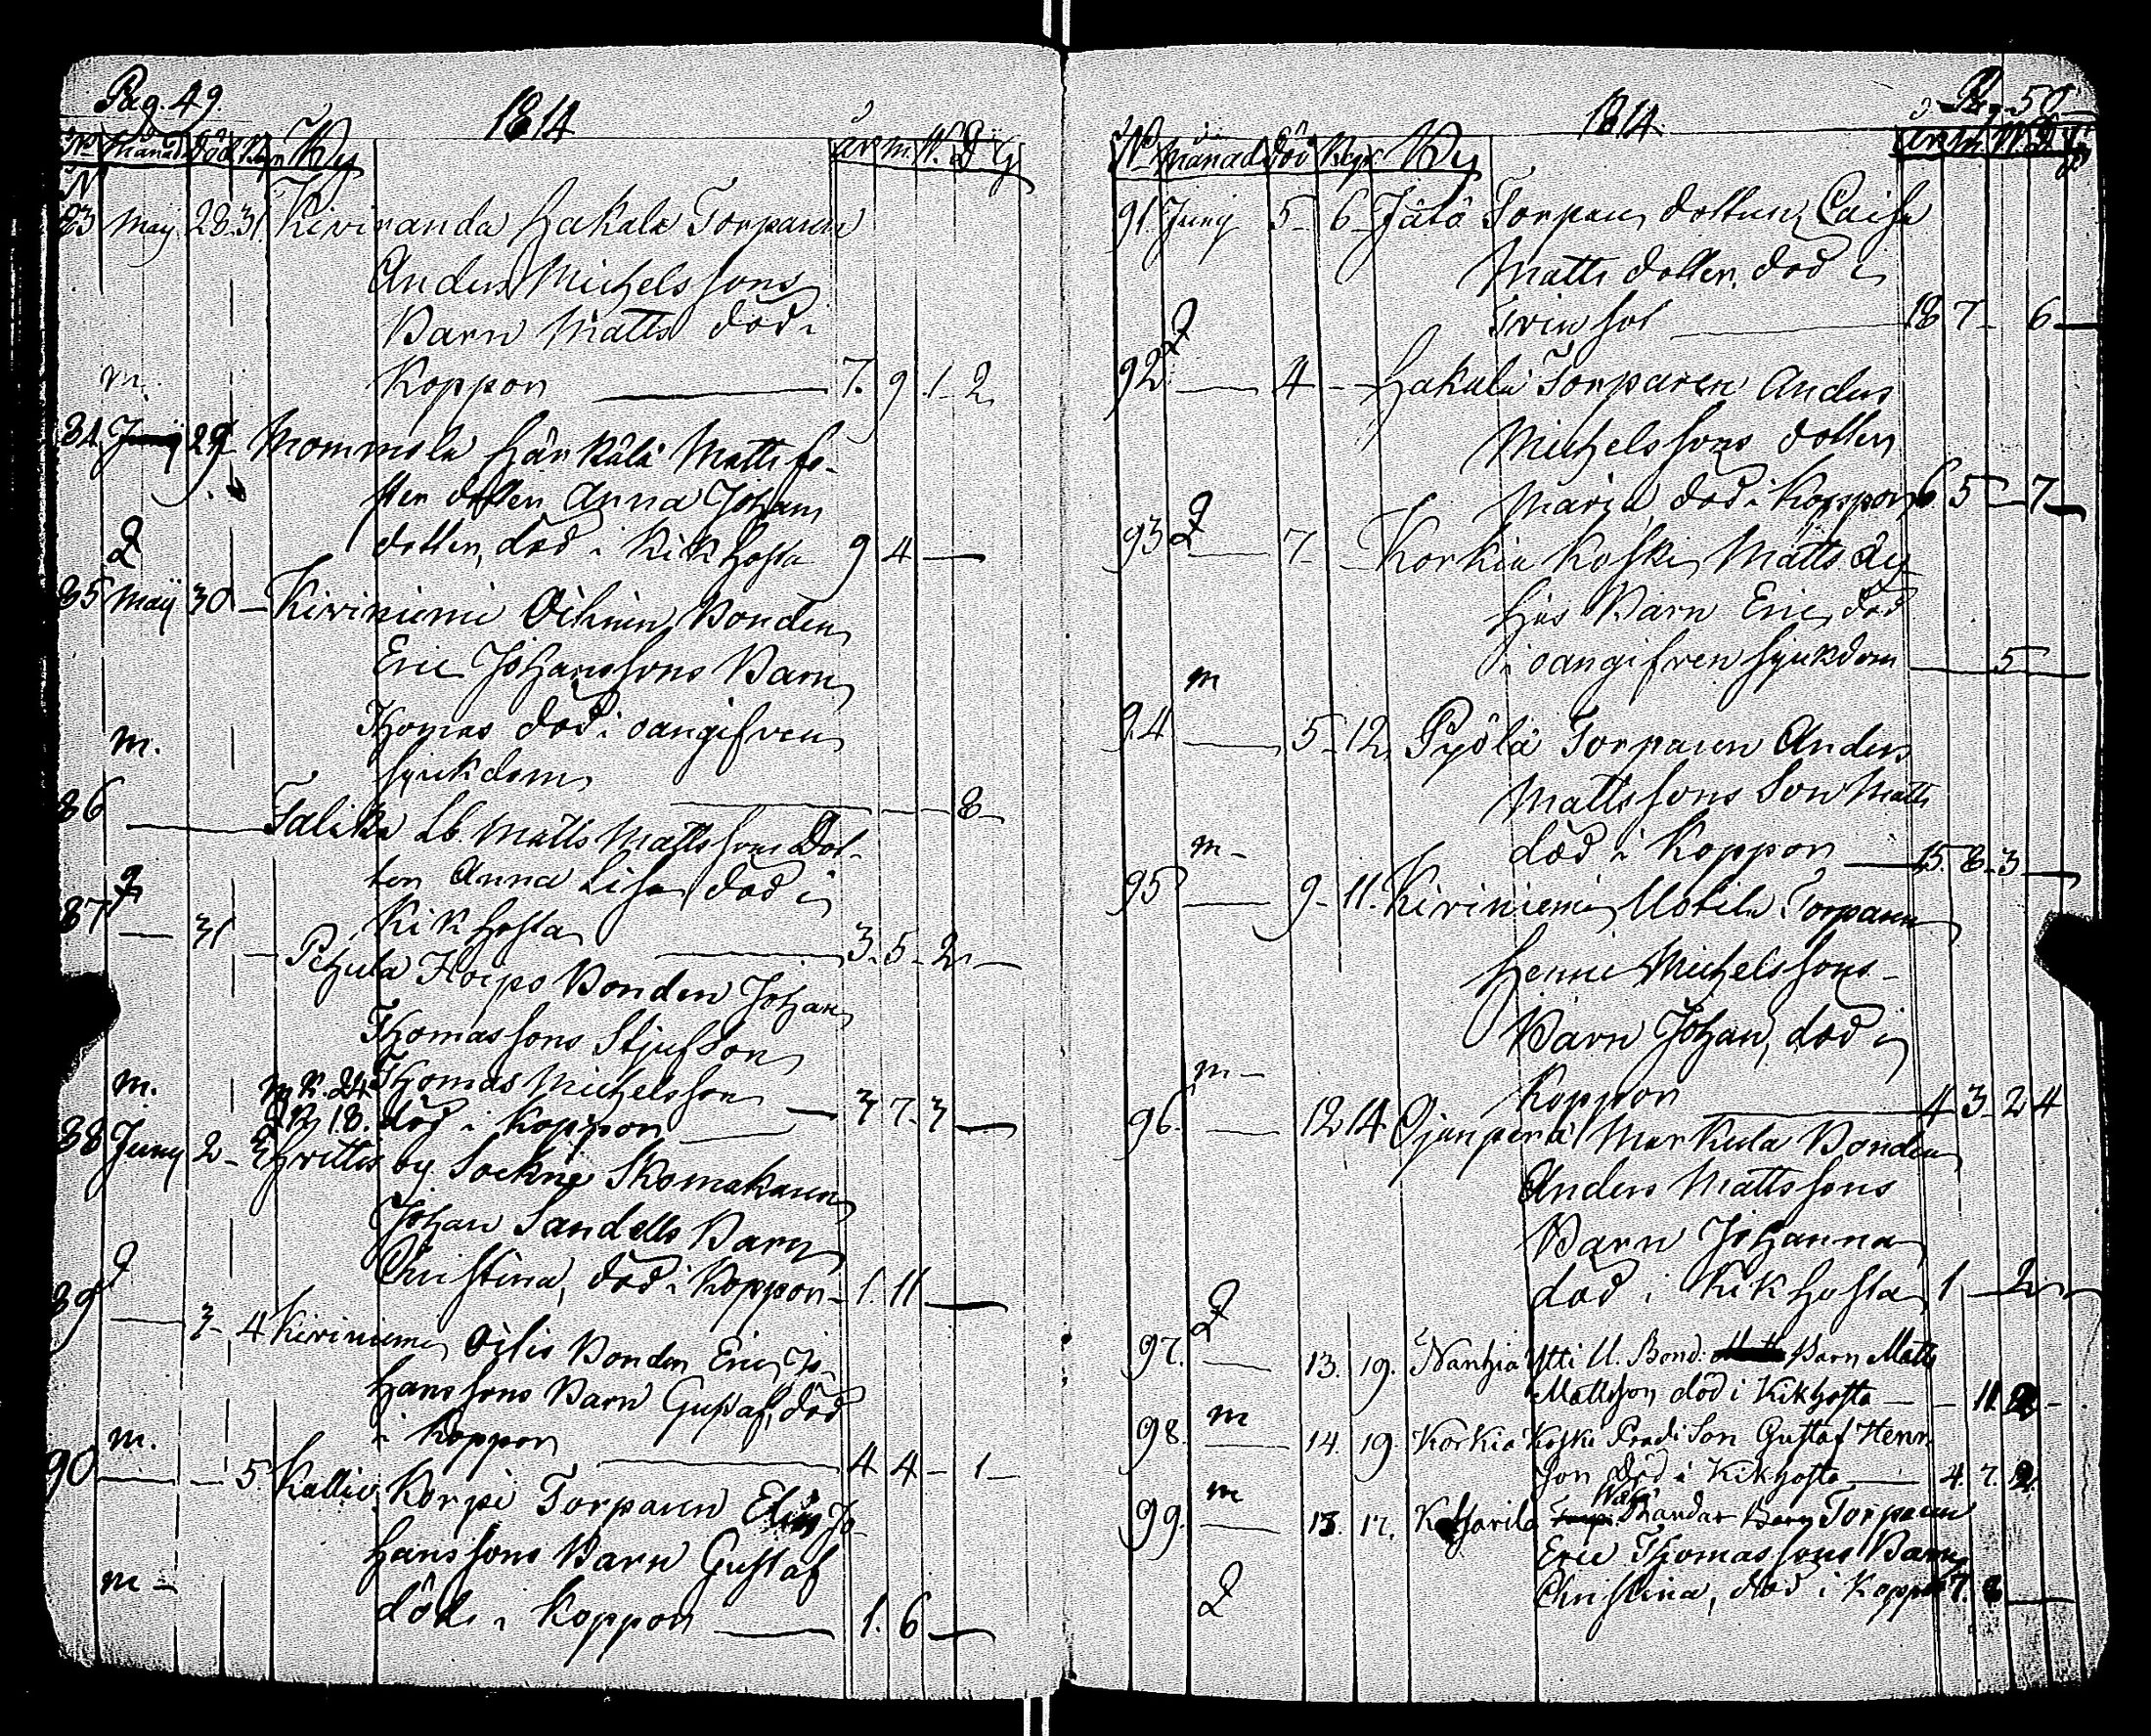 Pag. 49.
1814
No Månad död Begr By år m. W. D
83 Maij 28. 31. Kiviranda Hakala Torparen
Anders Michelssons
Barn Matts död i
m. Koppon 7. 9 1. 2
84 29 Mommola Härkälä Matts fo-
ster dotter Anna Johans
dotter, död i Kikhosta 9 4 —
85 Maij 30 — Kiviniemi Bonden
Eric Johanssons Barn
Thomas död i oangifven
m. sjukdom — 8 —
86 — Lb. Matts Mattssons Dot-
ter Anna Lisa död i
Kikhosta 3. 5 - 2 —
87 — 31 — Pehula Bonden Johan
Thomassons Stjufson
m. Thomas Michelsson
m K. 24
Q K 18. död i Koppon — 3 7. 3 —
88 Junij 2 - by Sockne Skomakaren
Johan Sandells Barn
Christina, död i Koppon - 1. 11 —
89 — 3 - 4 Kiviniemi Oilis Bonden Eric Jo-
hanssons Barn Gustaf, död
m. i Koppon 4 4 - 1 -
90 — — 5. Kallio Korpi Torparen Elias Jo-
hanssons Barn Gustaf
m - död i Koppon — 1. 6 —
1814 Pag. 50
No Månad död Begr By år m W D
91. Junij 5 - 6 - Jätö Torpare dottern, Caisa
Matts dotter, död i
18 7 - 6 —
92. — 4 - - Hakala Torparen Anders
Michelssons dotter
Maria, död i Koppon 6. 5 - 7 -
93 — 7 - - Korkia Koski, Matts
Barn Eric, död
i oangifven sjukdom — 5 —
m
94 — 5 - 12, Pyölä Torparen Anders
Mattssons Son Matts
m - död i Koppon — 15. 8 - 3 —
95 — 9 - 11. Kiviniemi Torparen
Henric Michelssons
Barn Johan, död i
m - Koppon 4 3 - 2 4
96. — 12 14 Ojanperä Markula Bonden
Anders Mattssons
Barn Johanna
död i Kikhosta 1 — 2
97. — 13. 19. Nanhia Ytti U. Bond: Barn Matts
Mattsson, död i Kikhosta — - 11.
m
98. — 14. 19. Korkia Koski Son Gustaf Henr.
son död i Kikhosta — 4. 7. 2.
m
99. — 13. 17. Barn Torparen
Eric Thomassons Barn
Christina, död i Koppon 7. 8 —